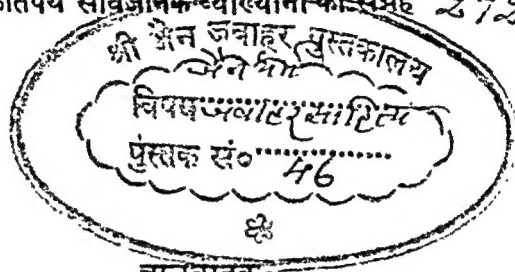 कतिपय सार्वजनिक व्याख्यानों का संग्रह 272
श्री जैन जवाहर पुस्तकालय
विषय जवाहर साहित्य
पुस्तक सं० 46